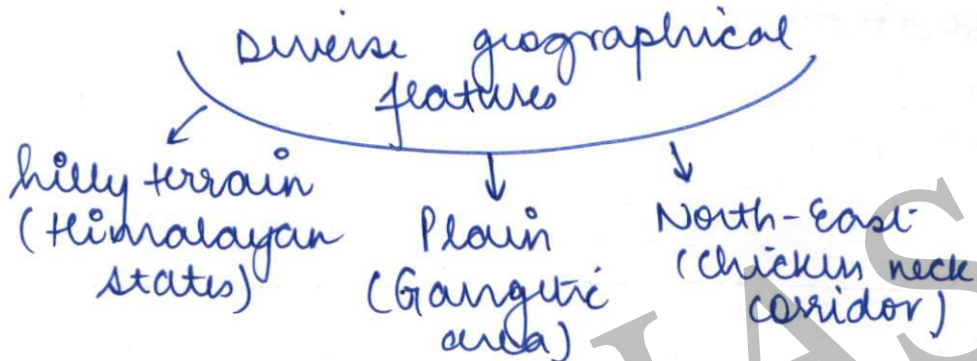 Diverse geographical
features
hilly terrain
(Himalayan
states)
Plain
(Gangetic
area)
North-East
(Chicken neck
corridor)
IAS